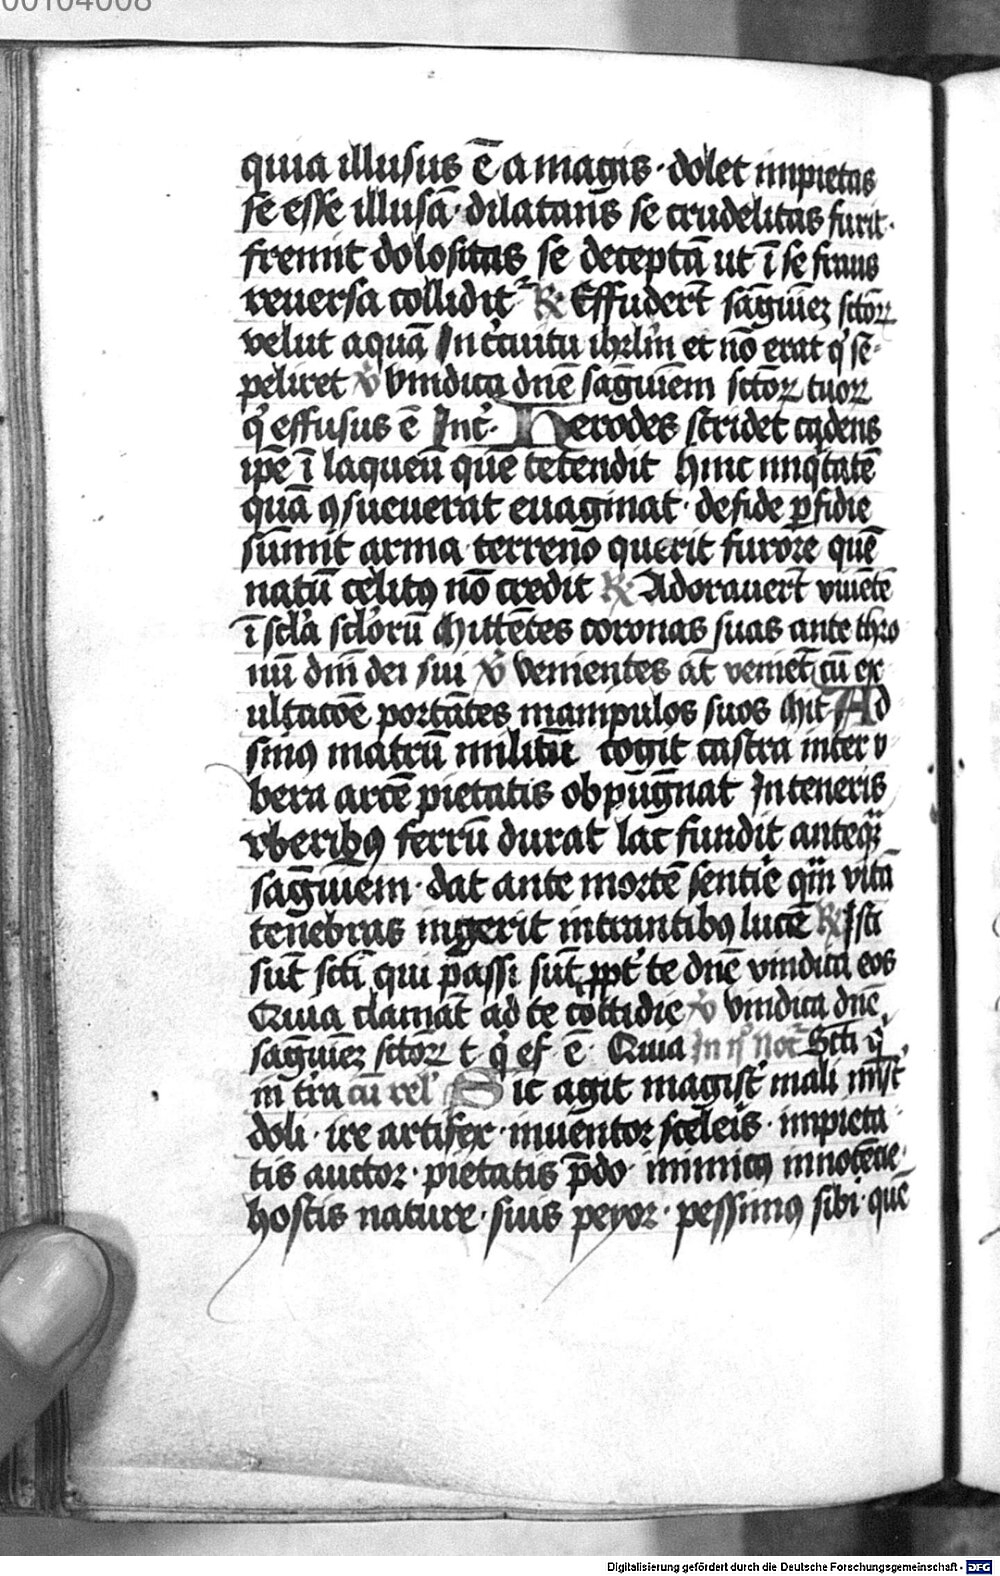 00104008
quia illusus ē a magis · dolet impietas
se esse illusā · dilatans se crudelitas furit ·
fremit dolositas se deceptā ut ī se fraus
reuersa collidit ℟ Effudert̄ sāguīeꝫ sctōꝝ
velut aquā In c̄cuitu ihrlm̄ et nō erat q̓ sē-
peliret ℣ Vindica dnē sāguīem sctōꝝ tuoꝝ
q̓ effusus ē Inc̄ · Herodes stridet cadens
ip̄e ī laqueū quē tetendit hinc iniq̄tatē
quā ꝯsueuerat euaginat · defide ꝑfidie
sumit arma · terreno querit furore quē
natū celitꝰ nō credit ℟ Adorauert̄ viuētē
ī scl̓a scl̓orū Mittētes coronas suas ante thro
nū dn̄i dei sui ℣ Venientes āt veniēt cū ex
ultatōe portātes manipulos suos Mit Ad
sinꝰ matrū militū cogit castra inter v
bera arcē pietatis obpugnat In teneris
vberibꝰ ferrū durat lac fundit anteq̄ꝫ
sāguīem · dat ante mortē sentīe q̄m vitā
tenebras ingerit intrantibꝰ lucē ℟ Isti
sūt scti qui passi sūt ꝓpt̓ te dnē vindica eos
Quia clamāt ad te cottidie ℣ Vindica dnē
sāguīeꝫ sctōꝝ t · q̓ ef · ē · Quia In ij° Noc̄ Scti q̓
in t̄ra cū rel̓ Sic agit magist̓ mali mist̓
doli · ire artifex · inuentor sceleis · impieta
tis auctor · pietatis p̄do · inimicꝰ innocēcie ·
hostis nature · suis peyor · pessimꝰ sibi · quē
Digitalisierung gefördert durch die Deutsche Forschungsgemeinschaft - DFG